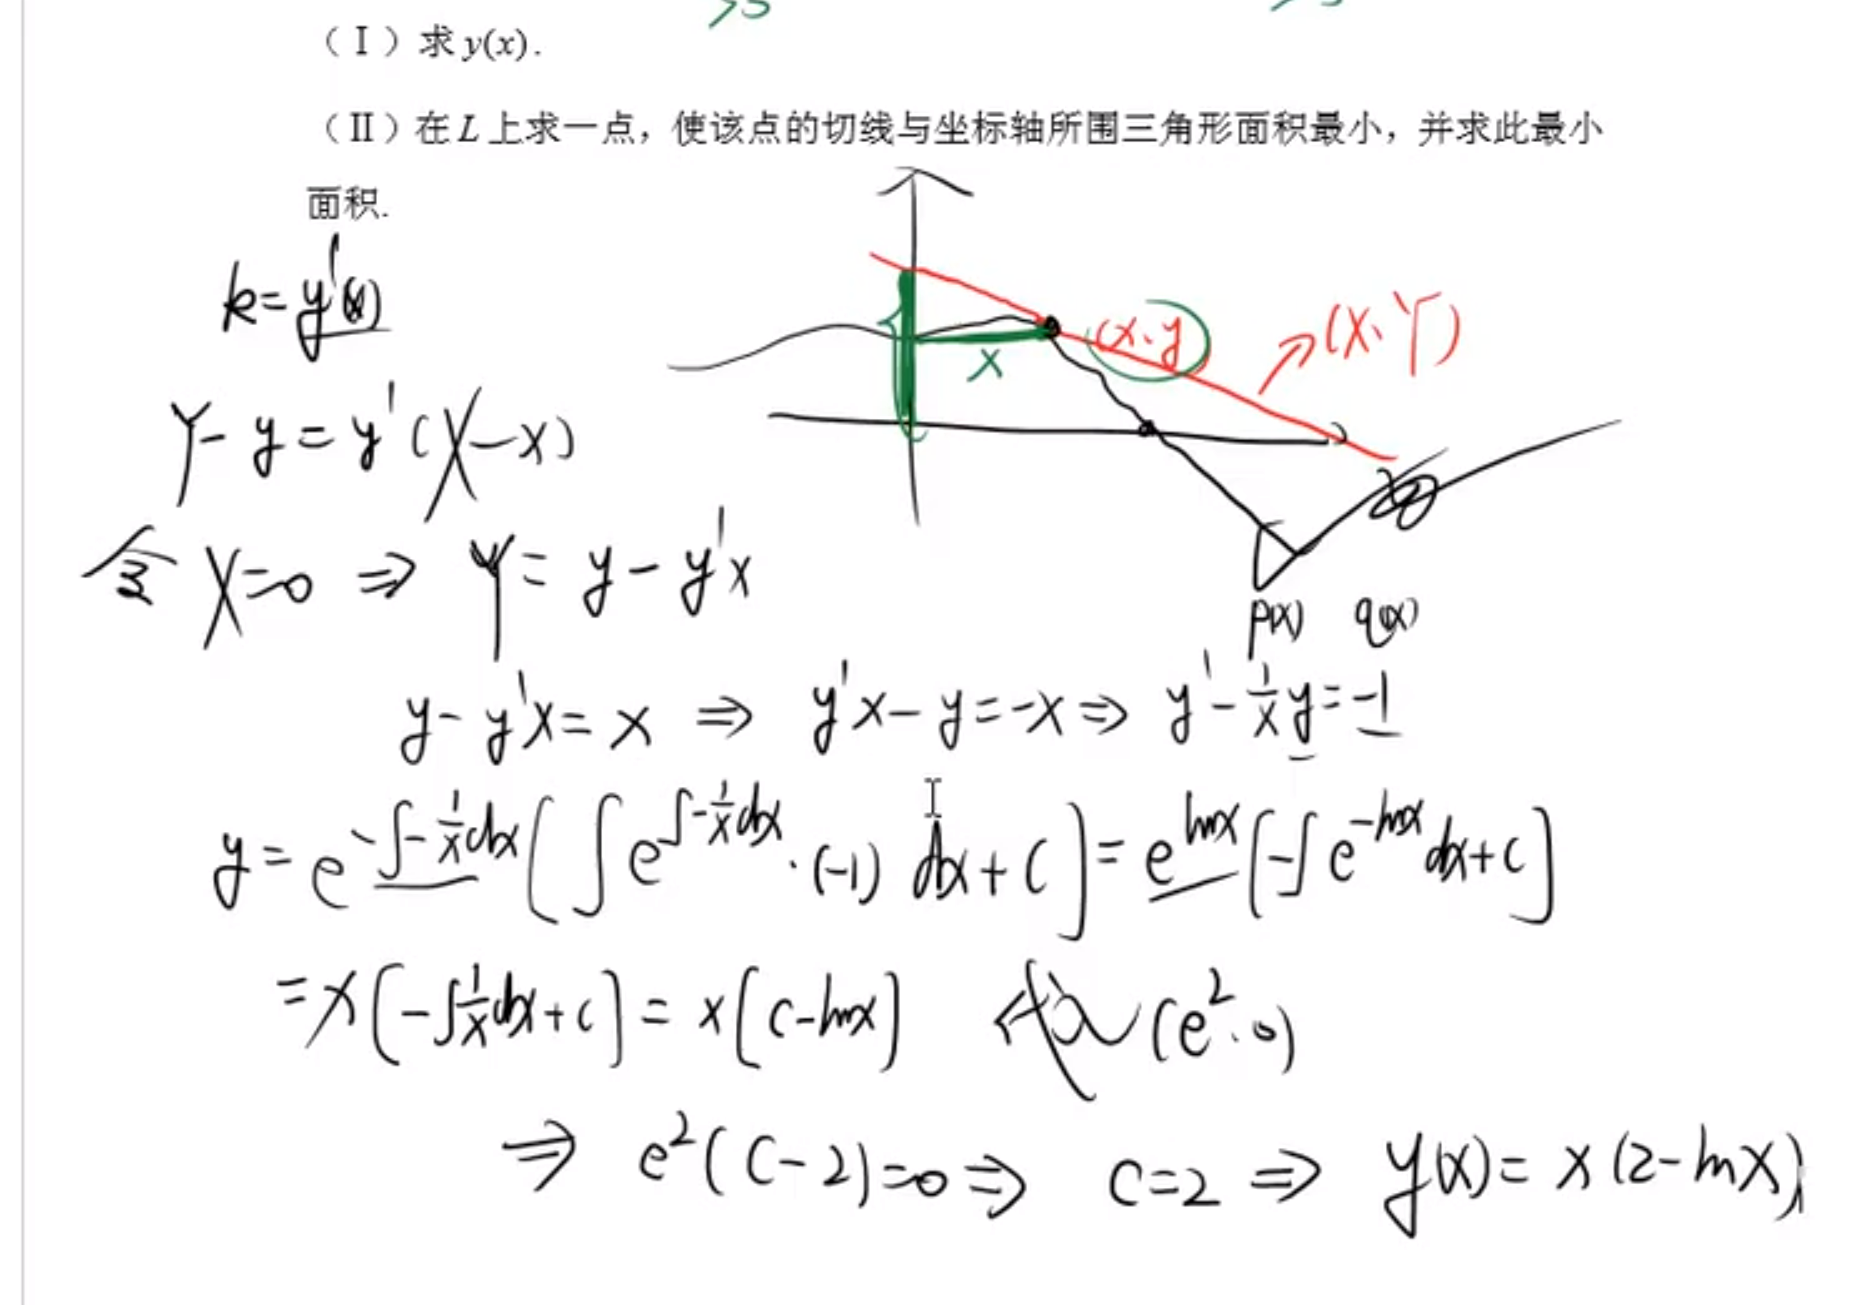 （Ⅰ）求 y(x).
（Ⅱ）在 L 上求一点，使该点的切线与坐标轴所围三角形面积最小，并求此最小
面积.
k=y'(x)
(x、y)
(X、Y)
x
Y-y=y'(X-x)
令 X=0 ⇒ Y=y-y'x
p(x) q(x)
y-y'x=x ⇒ y'x-y=-x ⇒ y'-\frac{1}{x}y=-1
y=e^{-∫-\frac{1}{x}dx}[∫e^{∫-\frac{1}{x}dx}·(-1)dx+C]=e^{lnx}[-∫e^{-lnx}dx+C]
=x[-∫\frac{1}{x}dx+C]=x[C-lnx] 代入(e².0)
⇒ e²(C-2)=0 ⇒ C=2 ⇒ y(x)=x(2-lnx)